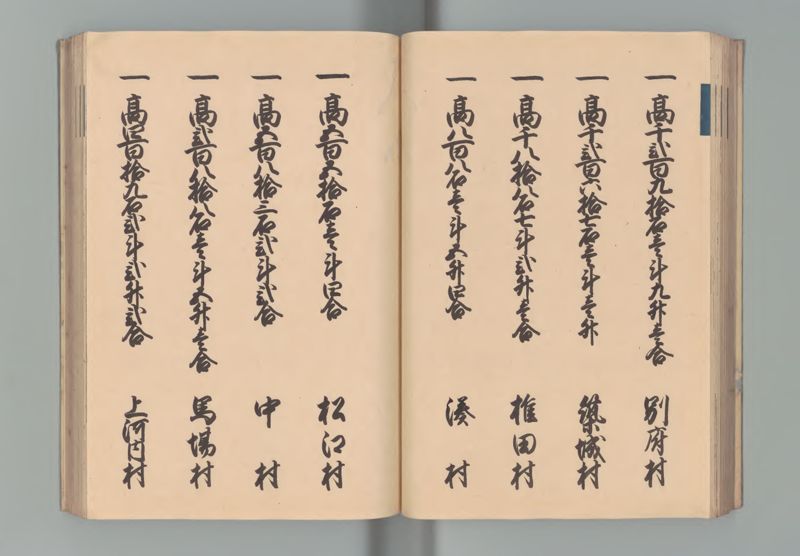 一高千弐百九拾石壱斗九升壱合 別府村
一高千弐百六拾石壱斗壱升 築城村
一高千八拾八石七斗弐升壱合 椎田村
一高八百八石壱斗五升四合 湊村
一高五百五拾石壱斗四合 松江村
一高五百八拾三石弐斗弐合 中村
一高弐百八拾八石壱斗五升壱合 馬場村
一高四百拾九石弐斗弐升弐合 上河内村